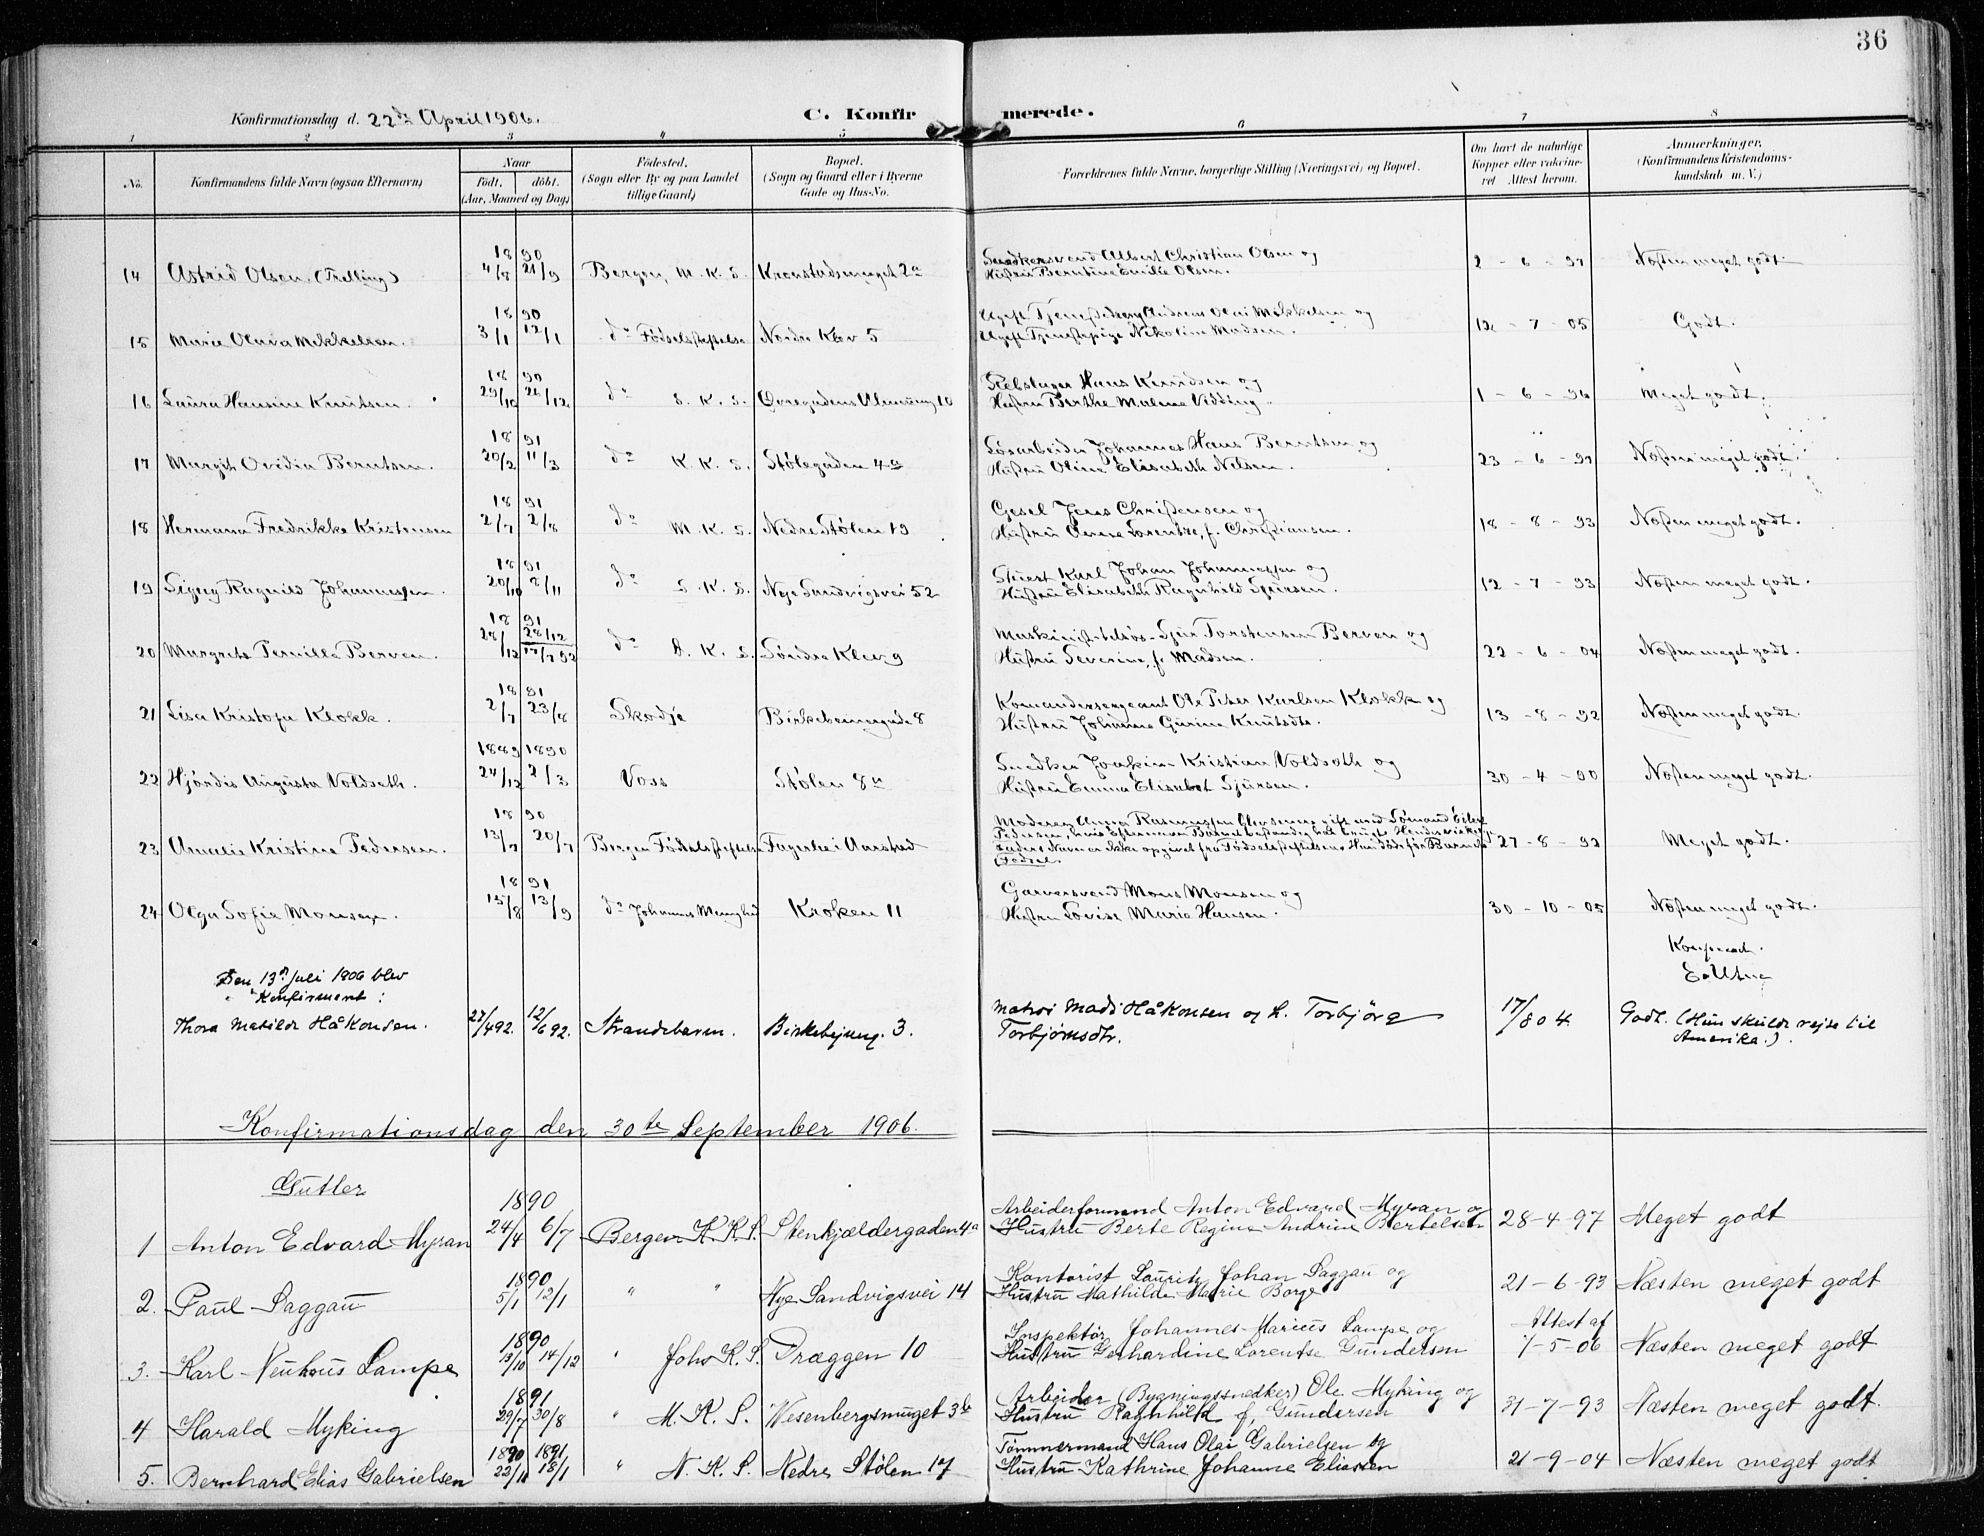 36
Konfirmationsdag d. 22de April 1906.
C. Konfirmerede.
1 2 3 4 5 6 7 8
No. Konfirmandens fulde Navn (ogsaa Efternavn) Naar født, døbt. (Aar, Maaned og Dag) Fødested. (Sogn eller By og paa Landet tillige Gaard) Bopæl. (Sogn og Gaard eller i Byerne Gade og Hus-No. Forældrenes fulde Navne, borgerlige Stilling (Næringsvei) og Bopæl. Om havt de naturlige Kopper eller vakcineret Attest herom. Anmærkninger, (Konfirmandens Kristendomskundskab m. V.)
18 90
14 Astrid Olsen (Trelling) 4/8 21/9 Bergen, M. K. S. Kronstadsmuget 2a Snedkersvend Albert Christian Olsen og Hustru Berntine Emilie Olsen. 2 - 6 - 91 Næsten meget godt.
18 90
15 Marie Olava Mikkelsen. 3/1 12/1 do Fødselsstiftelse Nordre Klev 5 Ugift Tjenestekarl Andreas Olai Mikkelsen og Ugift Tjenestepige Nikoline Madsen. 12 - 7 - 05 Godt.
18 90
16 Laura Hansine Knutsen. 29/10 26/12 do S. K. S. Øvregadens Almening 10 Rebslager Hans Knudsen og Hustru Berthe Malene Vidding. 1 - 6 - 96 Meget godt.
18 91
17 Margit Ovidia Berntsen. 20/2 11/3 do K. K. S. Stølegaden 4a Løsarbeider Johannes Hans Berntsen og Hustru Oline Elisabeth Nilsen. 23 - 6 - 91 Næsten meget godt.
18 91
18 Hermana Fredrikke Kristensen 2/7 2/8 do M. K. S. Nedre Stølen 19 Gesel Jens Christensen og Hustru Lorentze, f. Christiansen. 18 - 8 - 93 Næsten meget godt.
18 91
19 Signy Ragnild Johannessen. 20/10 8/11 do S. K. S. Nye Sandvigsvei 52 Stuert Karl Johan Johannessen og Hustru Elisabeth Ragnhild Sjursen. 12 - 7 - 93 Næsten meget godt.
18 91
20 Margrete Pernille Berven. 28/12 28/12 17/7 92 do D. K. S. Søndre Klev 9 Maskinist tilsøs Sjur Torstensen Berven og Hustru Severine, f. Madsen. 22 - 6 - 04 Næsten meget godt.
18 91
21 Lisa Kristofa Klokk. 2/7 23/8 Skodje Birkebeinergade 8 Komandersergeant Ole Peter Karlsen Klokk og Hustru Johanna Gurine Knutsdtr. 13 - 8 - 92 Næsten meget godt.
1889 1890
22 Hjördis Augusta Voldseth. 24/12 2/3 Voss Stølen 8a Snedker Joakim Kristian Voldseth og Hustru Emma Elisabet Sjursen. 30 - 4 - 00 Næsten meget godt.
18 90
23 Amalie Kristine Pedersen. 13/7 20/7 Bergen Fødselsstiftelse Fagerlie i Aarstad Moderen Anna Rasmussen Olsen gift med Sømand Eilert Pedersen, hvis Efternavn Barnet bestandig har brugt. Faders Navn er ikke opgivet fra Fødselsstiftelsen. Hun døde før Barnets Fødsel. 27 - 8 - 92 Meget godt.
18 91
24 Olga Sofie Monsen. 15/8 13/9 do Johannes Menighed Kroken 11 Garversvend Mons Monsen og Hustru Lovise Marie Hansen. 30 - 10 - 05 Næsten meget godt.
E. Utne
Den 13de Juli 1906 blev
Konfirmeret:
Thora Matilde Håkonsen. 27/4 92. 12/6 92. Strandebarm. Birkebejnerg. 3. Matros Mads Håkonsen og H. Torbjörg Torbjörnsdtr. 17/8 04. Godt. (Hun skulde rejse til Amerika.)
Konfirmationsdag den 30te September 1906.
Gutter
1890
1 Anton Edvard Myran 24/4 6/7 Bergen K. K. S. Stenkjældergaden 4a Arbeiderformand Anton Edvard Myran og Hustru Berte Regine Andrine Bertelsen 28-4-97 Meget godt
1890
2. Paul Saggau 5/1 12/1 " " Nye Sandvigsvei 14 Kontorist Lauritz Johan Saggau og Hustru Mathilde Marie Borge 21-6-93 Næsten meget godt
1890
3. Karl Neuhaus Lampe 13/10 14/12 " Joh. K. S. Dræggen 10 Inspektør Johannes Marius Lampe og Hustru Gerhardine Lorentse Gundersen Attest af 7-5-06 Næsten meget godt
1891
4 Harald Myking 29/7 30/8 " M. K. S. Wesenbergsmuget 3b Arbeider (Bygningssnedker) Ole Myking og Hustru Ragnhild f. Gundersen 31-7-93 Næsten meget godt.
1890 1891
5. Bernhard Elias Gabrielsen 22/11 18/1 " N. K. S. Nedre Stølen 17 Tømmermand Hans Olai Gabrielsen og Hustru Kathrine Johanne Eliassen 21-9-04 Næsten meget godt